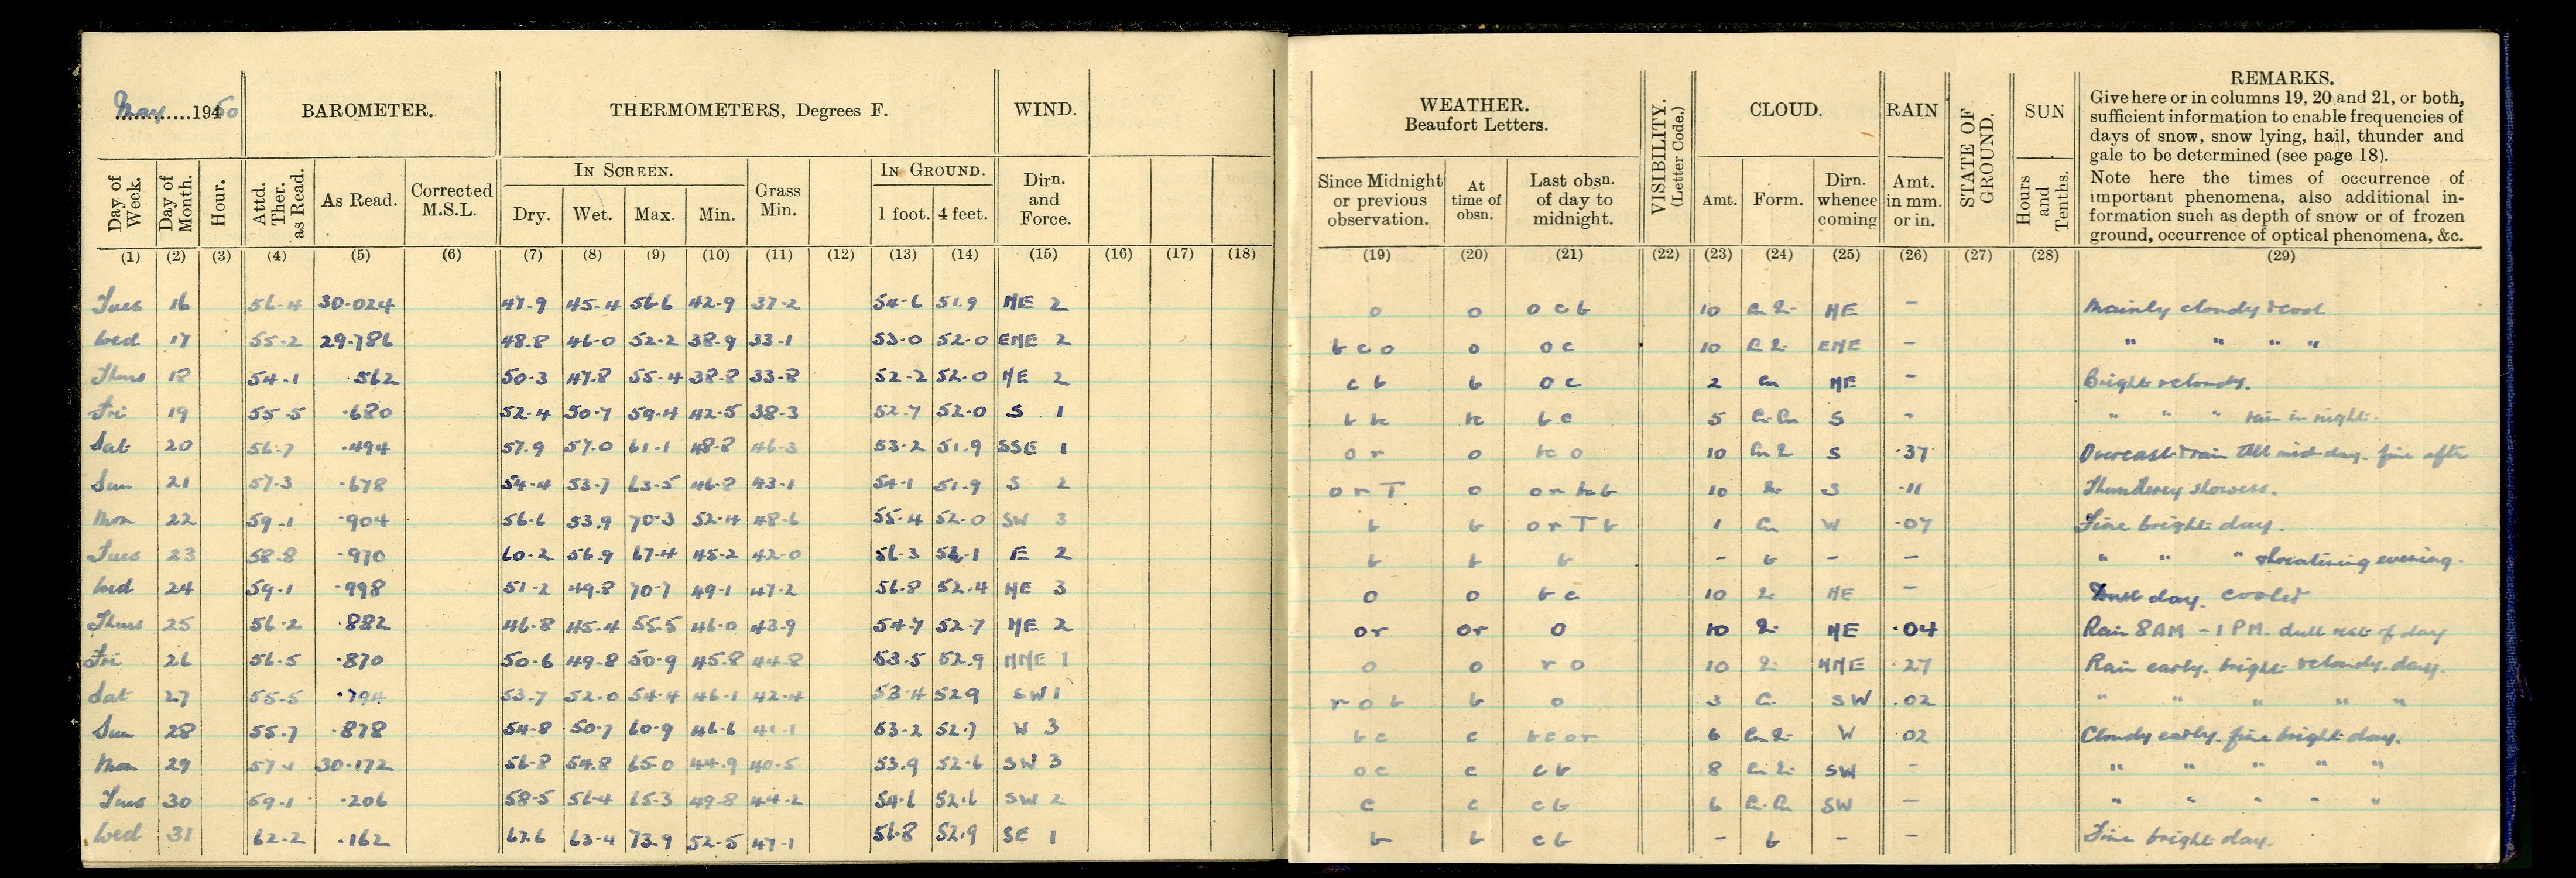 May 1950 BAROMETER. THERMOMETERS, Degrees F. WIND. WEATHER. Beaufort Letters. VISIBILITY. (Letter Code.) CLOUD. RAIN STATE OF GROUND. SUN REMARKS.
Give here or in columns 19, 20 and 21, or both,
sufficient information to enable frequencies of
days of snow, snow lying, hail, thunder and
gale to be determined (see page 18).
Note here the times of occurrence of
important phenomena, also additional in-
formation such as depth of snow or of frozen
ground, occurrence of optical phenomena, &c.
IN SCREEN. IN GROUND.
Day of Week. Day of Month. Hour. Attd. Ther. as Read. As Read. Corrected M.S.L. Dry. Wet. Max. Min. Grass Min. 1 foot. 4 feet. Dirn. and Force. Since Midnight or previous observation. At time of obsn. Last obsn. of day to midnight. Amt. Form. Dirn. whence coming Amt. in mm. or in. Hours and Tenths.
(1) (2) (3) (4) (5) (6) (7) (8) (9) (10) (11) (12) (13) (14) (15) (16) (17) (18) (19) (20) (21) (22) (23) (24) (25) (26) (27) (28) (29)
Tues 16 56.4 30.024 47.9 45.4 56.6 42.9 37.2 54.6 51.9 NE 2 o o o c b 10 NE - Mainly cloudy & cool
Wed 17 55.2 29.786 48.8 46.0 52.2 38.9 33.1 53.0 52.0 ENE 2 b c o o o c 10 ENE - " " " "
Thurs 18 54.1 .562 50.3 47.8 55.4 38.8 33.8 52.2 52.0 NE 2 c b b o c 2 Cu NE - Bright & cloudy.
Fri 19 55.5 .680 52.4 50.7 59.4 42.5 38.3 52.7 52.0 S 1 b c 5 S - " " " rain in night.
Sat 20 56.7 .494 57.9 57.0 61.1 48.8 46.3 53.2 51.9 SSE 1 o r o 10 S .37 Overcast & rain till mid-day. fine after
Sun 21 57.3 .678 54.4 53.7 63.5 46.8 43.1 54.1 51.9 S 2 o r T o 10 S .11 Thunderey showers.
Mon 22 59.1 .904 56.6 53.9 70.3 52.4 48.6 55.4 52.0 SW 3 b b o r T b 1 Cu W .07 Fine bright day.
Tues 23 58.8 .970 60.2 56.9 67.4 45.2 42.0 56.3 52.1 E 2 b b b - b - - " " " threatining evening.
Wed 24 59.1 .998 51.2 49.8 70.7 49.1 47.2 56.8 52.4 NE 3 o o b c 10 NE - Dull day. cooler
Thurs 25 56.2 .882 46.8 45.4 55.5 46.0 43.9 54.7 52.7 NE 2 o r o r o 10 NE .04 Rain 8 AM - 1 PM. dull rest of day
Fri 26 56.5 .870 50.6 49.8 50.9 45.8 44.8 53.5 52.9 NNE 1 o o r o 10 NNE .27 Rain early. bright & cloudy day.
Sat 27 55.5 .794 53.7 52.0 54.4 46.1 42.4 53.4 52.9 SW 1 r o b b o 3 SW .02 " " " " "
Sun 28 55.7 .878 54.8 50.7 60.9 46.6 41.1 53.2 52.7 W 3 b c c b c o r 6 W .02 Cloudy early. fine bright day.
Mon 29 57.1 30.172 56.8 54.8 65.0 44.9 40.5 53.9 52.6 SW 3 o c c c b 8 SW - " " " " "
Tues 30 59.1 .206 58.5 56.4 65.3 49.8 44.2 54.6 52.6 SW 2 c c c b 6 SW - " " " " "
Wed 31 62.2 .162 67.6 63.4 73.9 52.5 47.1 56.8 52.9 SE 1 b b c b - b - - Fine bright day.